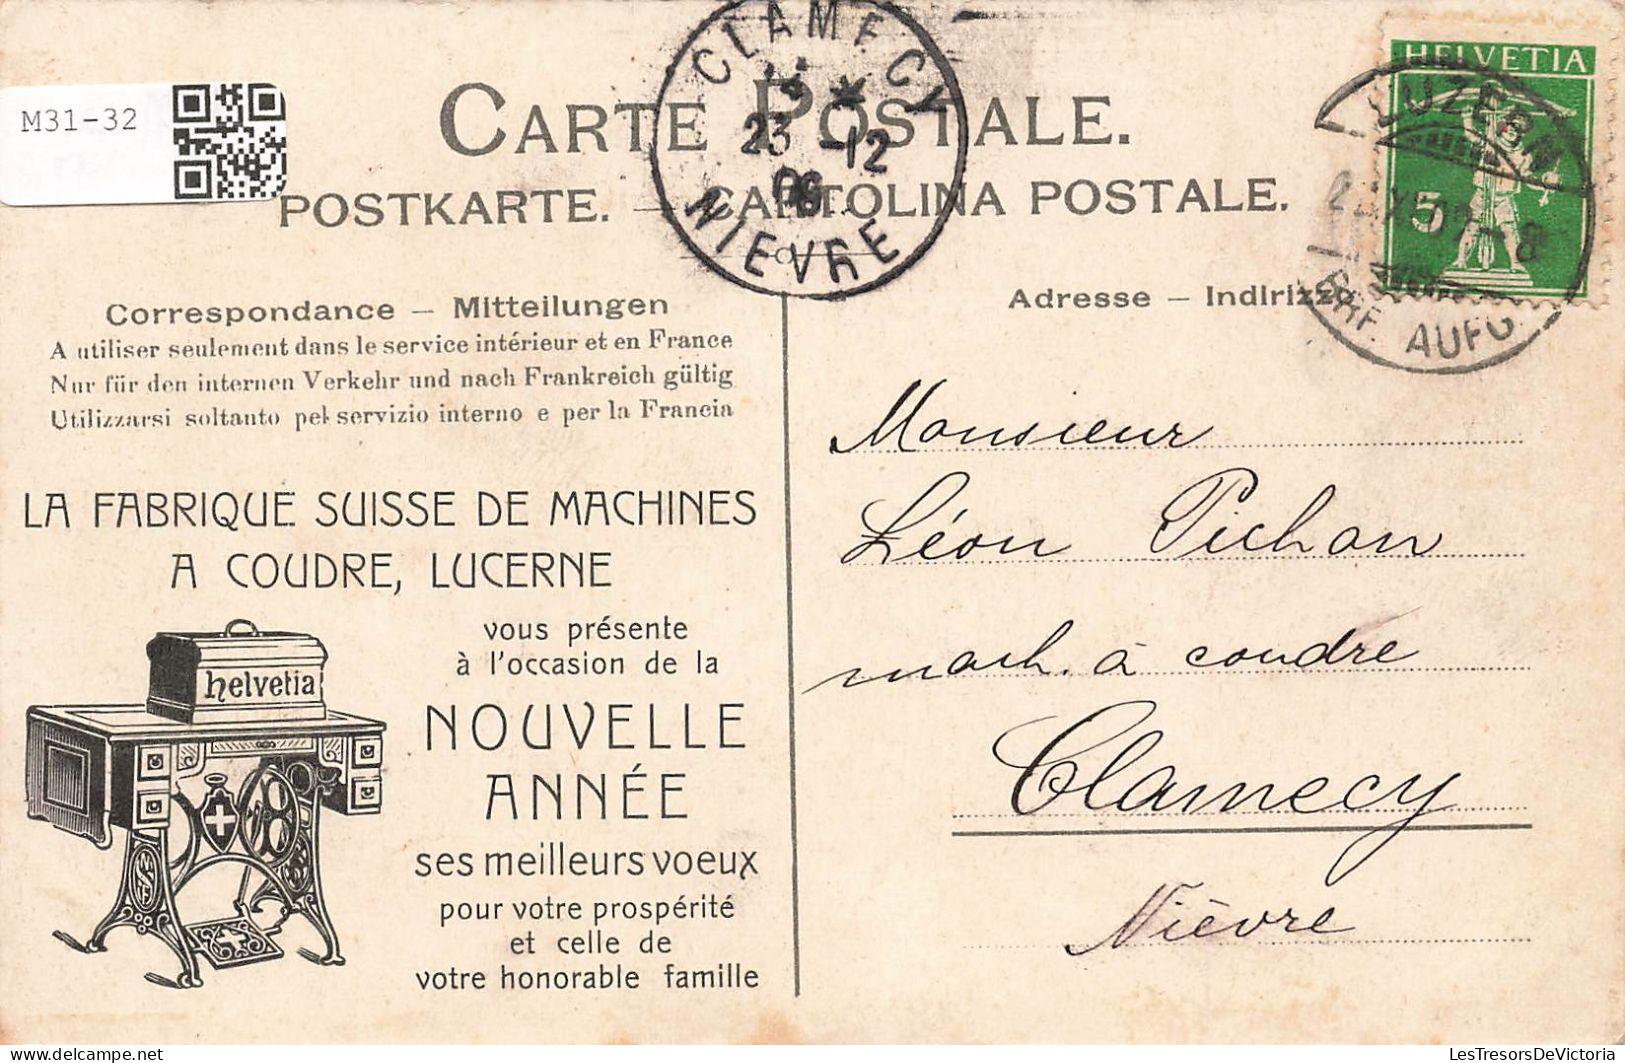 M31-32
CARTE POSTALE.
POSTKARTE. — CARTOLINA POSTALE.
CLAMECY
23 -12
09
NIÈVRE
HELVETIA
5
LUZERN
BRF. AUFG.
Correspondance — Mitteilungen
A utiliser seulement dans le service intérieur et en France
Nur für den internen Verkehr und nach Frankreich gültig
Utilizzarsi soltanto pel servizio interno e per la Francia
Adresse — Indirizzo
LA FABRIQUE SUISSE DE MACHINES
A COUDRE, LUCERNE
helvetia
vous présente
à l'occasion de la
NOUVELLE
ANNÉE
ses meilleurs voeux
pour votre prospérité
et celle de
votre honorable famille
Monsieur
Léon Pichon
mach. à coudre
Clamecy
Nièvre
LesTresorsDeVictoria.com
LesTresorsDeVictoria